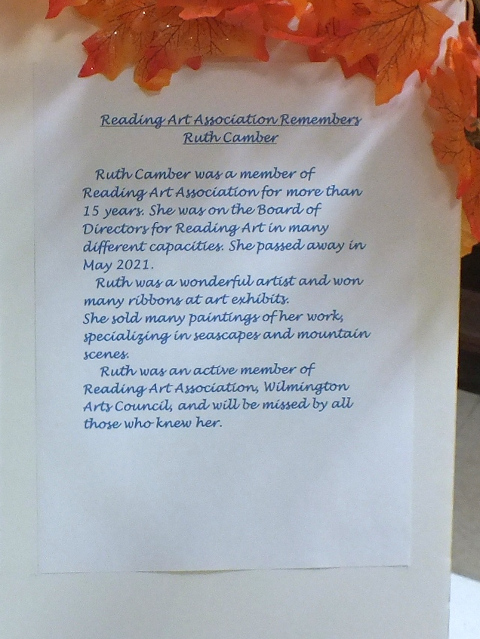 Reading Art Association Remembers
Ruth Camber
Ruth Camber was a member of
Reading Art Association for more than
15 years. She was on the Board of
Directors for Reading Art in many
different capacities. She passed away in
May 2021.
Ruth was a wonderful artist and won
many ribbons at art exhibits.
She sold many paintings of her work,
specializing in seascapes and mountain
scenes.
Ruth was an active member of
Reading Art Association, Wilmington
Arts Council, and will be missed by all
those who knew her.